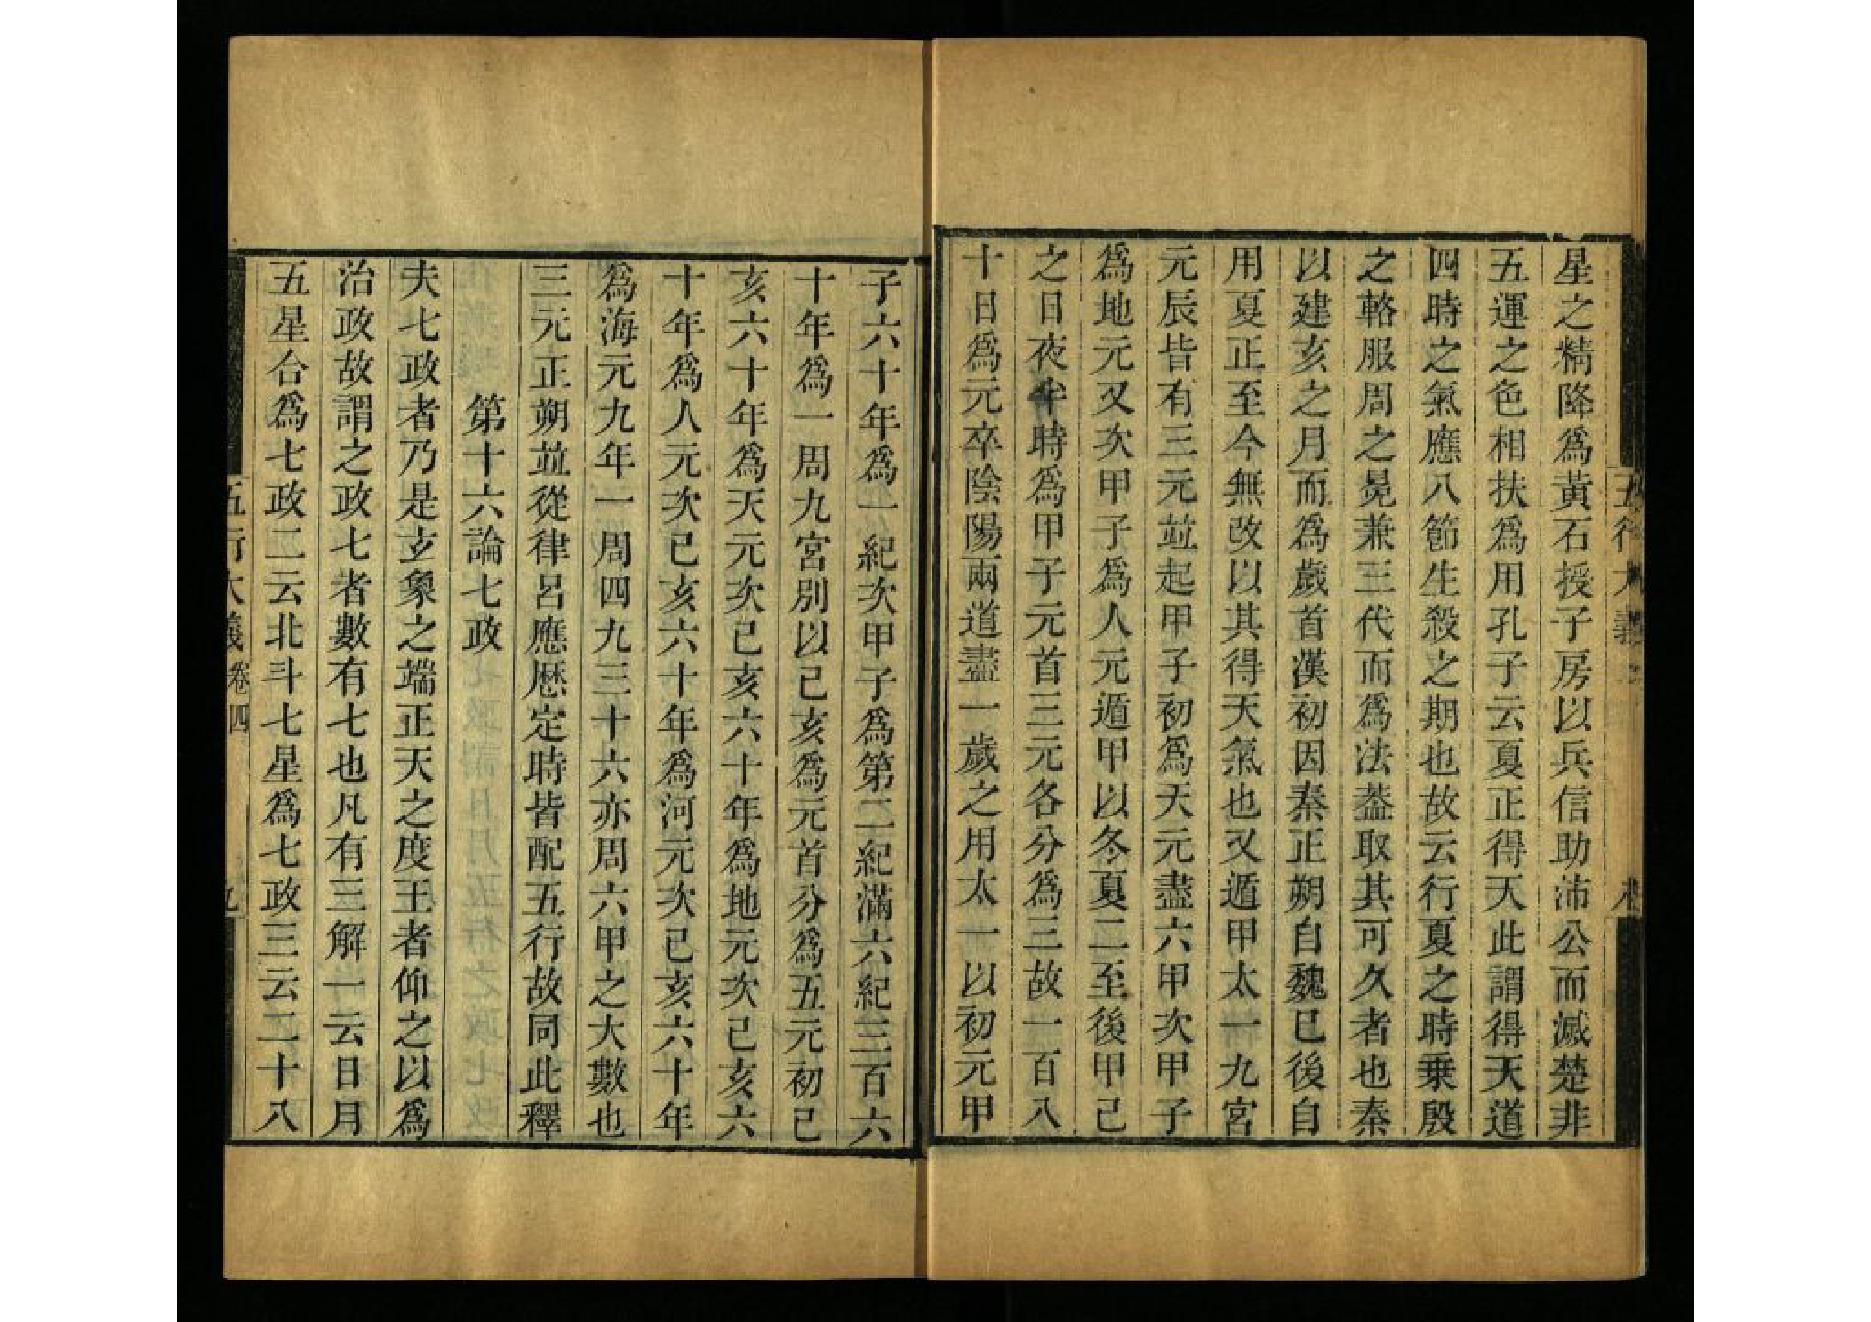 星之精降爲黃石授子房以兵信助沛公而滅楚非
五運之色相扶爲用孔子云夏正得天此謂得天道
四時之氣應八節生殺之期也故云行夏之時乗殷
之輅服周之冕兼三代而爲法葢取其可久者也秦
以建亥之月而爲歲首漢初因秦正朔自魏已後自
用夏正至今無改以其得天氣也又遁甲太一九宮
元辰皆有三元並起甲子初爲天元盡六甲次甲子
爲地元又次甲子爲人元遁甲以冬夏二至後甲己
之日夜半時爲甲子元首三元各分爲三故一百八
十日爲元卒陰陽兩道盡一歲之用太一以初元甲
子六十年爲一紀次甲子爲第二紀滿六紀三百六
十年爲一周九宮別以己亥爲元首分爲五元初己
亥六十年爲天元次己亥六十年爲地元次己亥六
十年爲人元次己亥六十年爲河元次己亥六十年
爲海元九年一周四九三十六亦周六甲之大數也
三元正朔並從律呂應厯定時皆配五行故同此釋
第十六論七政
夫七政者乃是玄象之端正天之度王者仰之以爲
治政故謂之政七者數有七也凡有三解一云日月
五星合爲七政二云北斗七星爲七政三云二十八
五行大義卷四
九